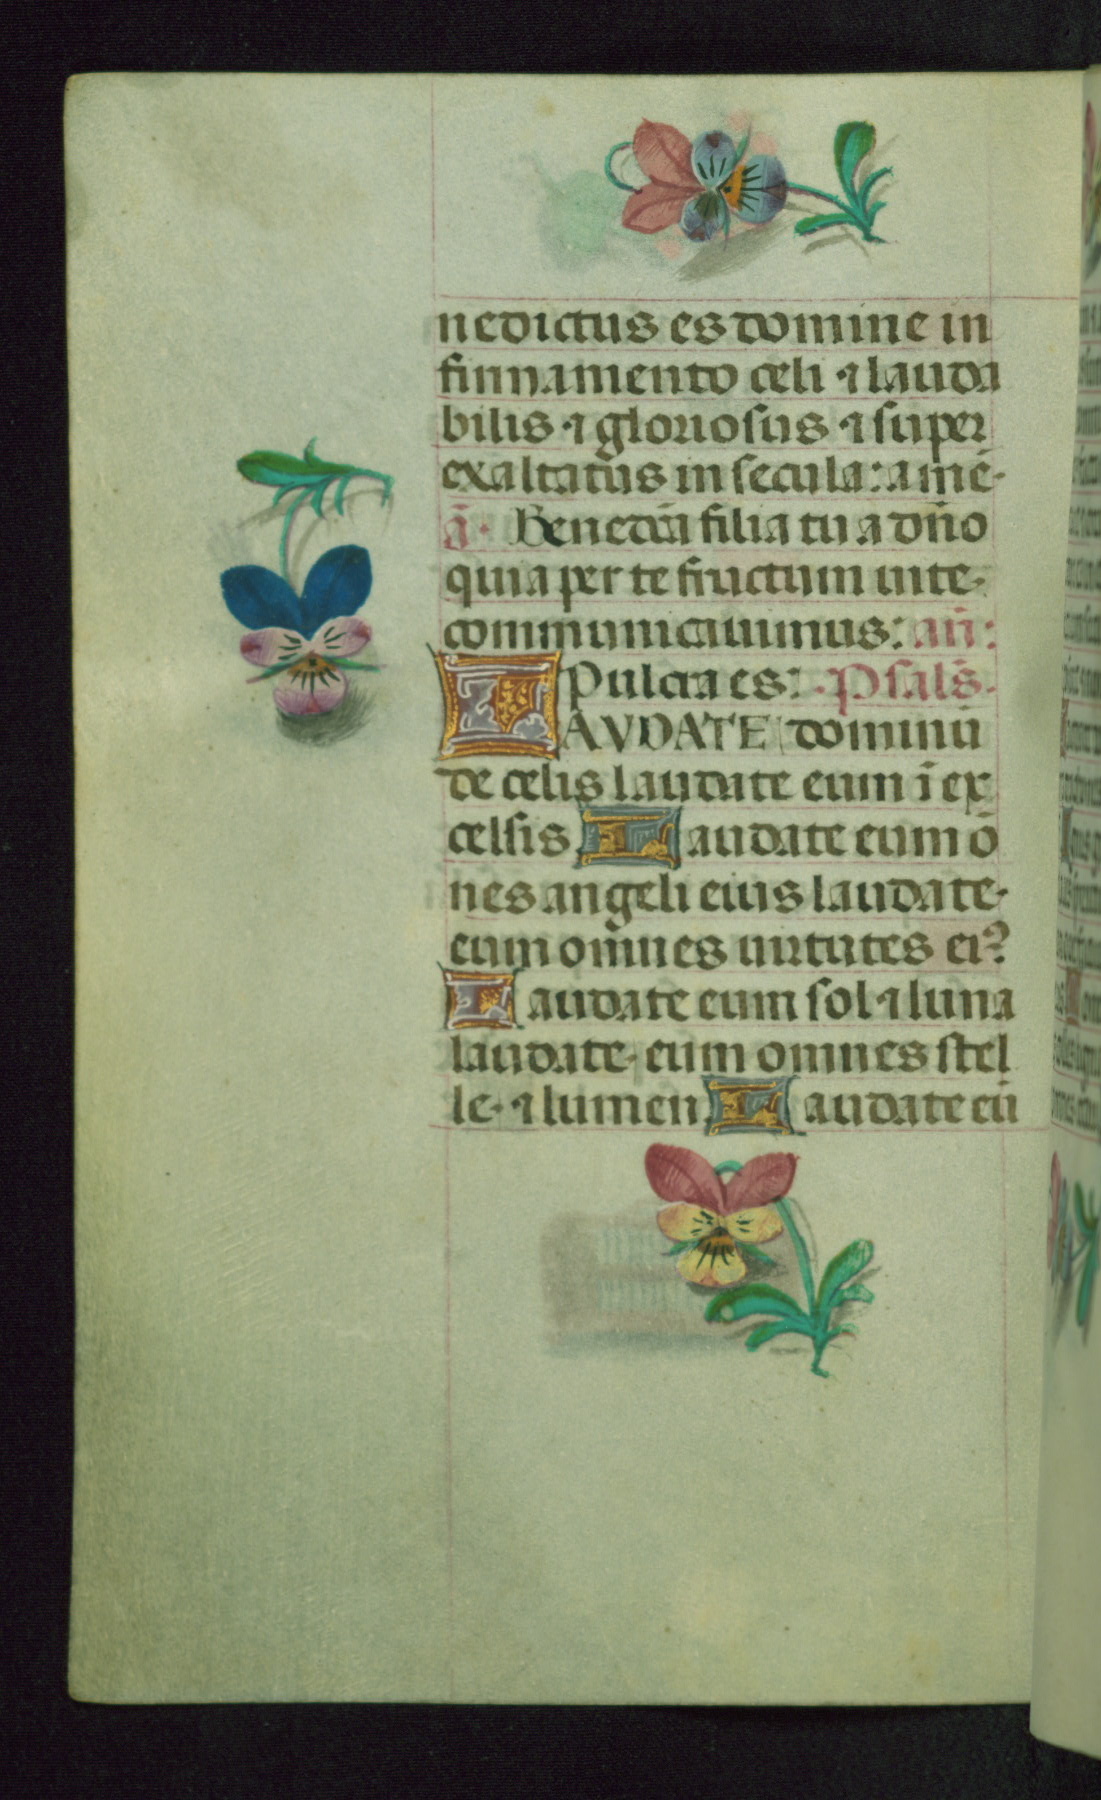 nedictus es domine in
firmamento celi ⁊ lauda
bilis ⁊ gloriosus ⁊ super
exaltatus in secula: amē.
ā. Benedc̄ta filia tu a dn̄o
quia per te fructum uite
communicauimus: an̄:
Pulcra es: Psalm̄s.
LAVDATE dominū
de celis laudate eum ī ex
celsis Laudate eum ō
nes angeli eius laudate
eum om̄nes uirtutes eiꝰ
Laudate eum sol ⁊ luna
laudate eum omnes stel
le ⁊ lumen Laudate eū